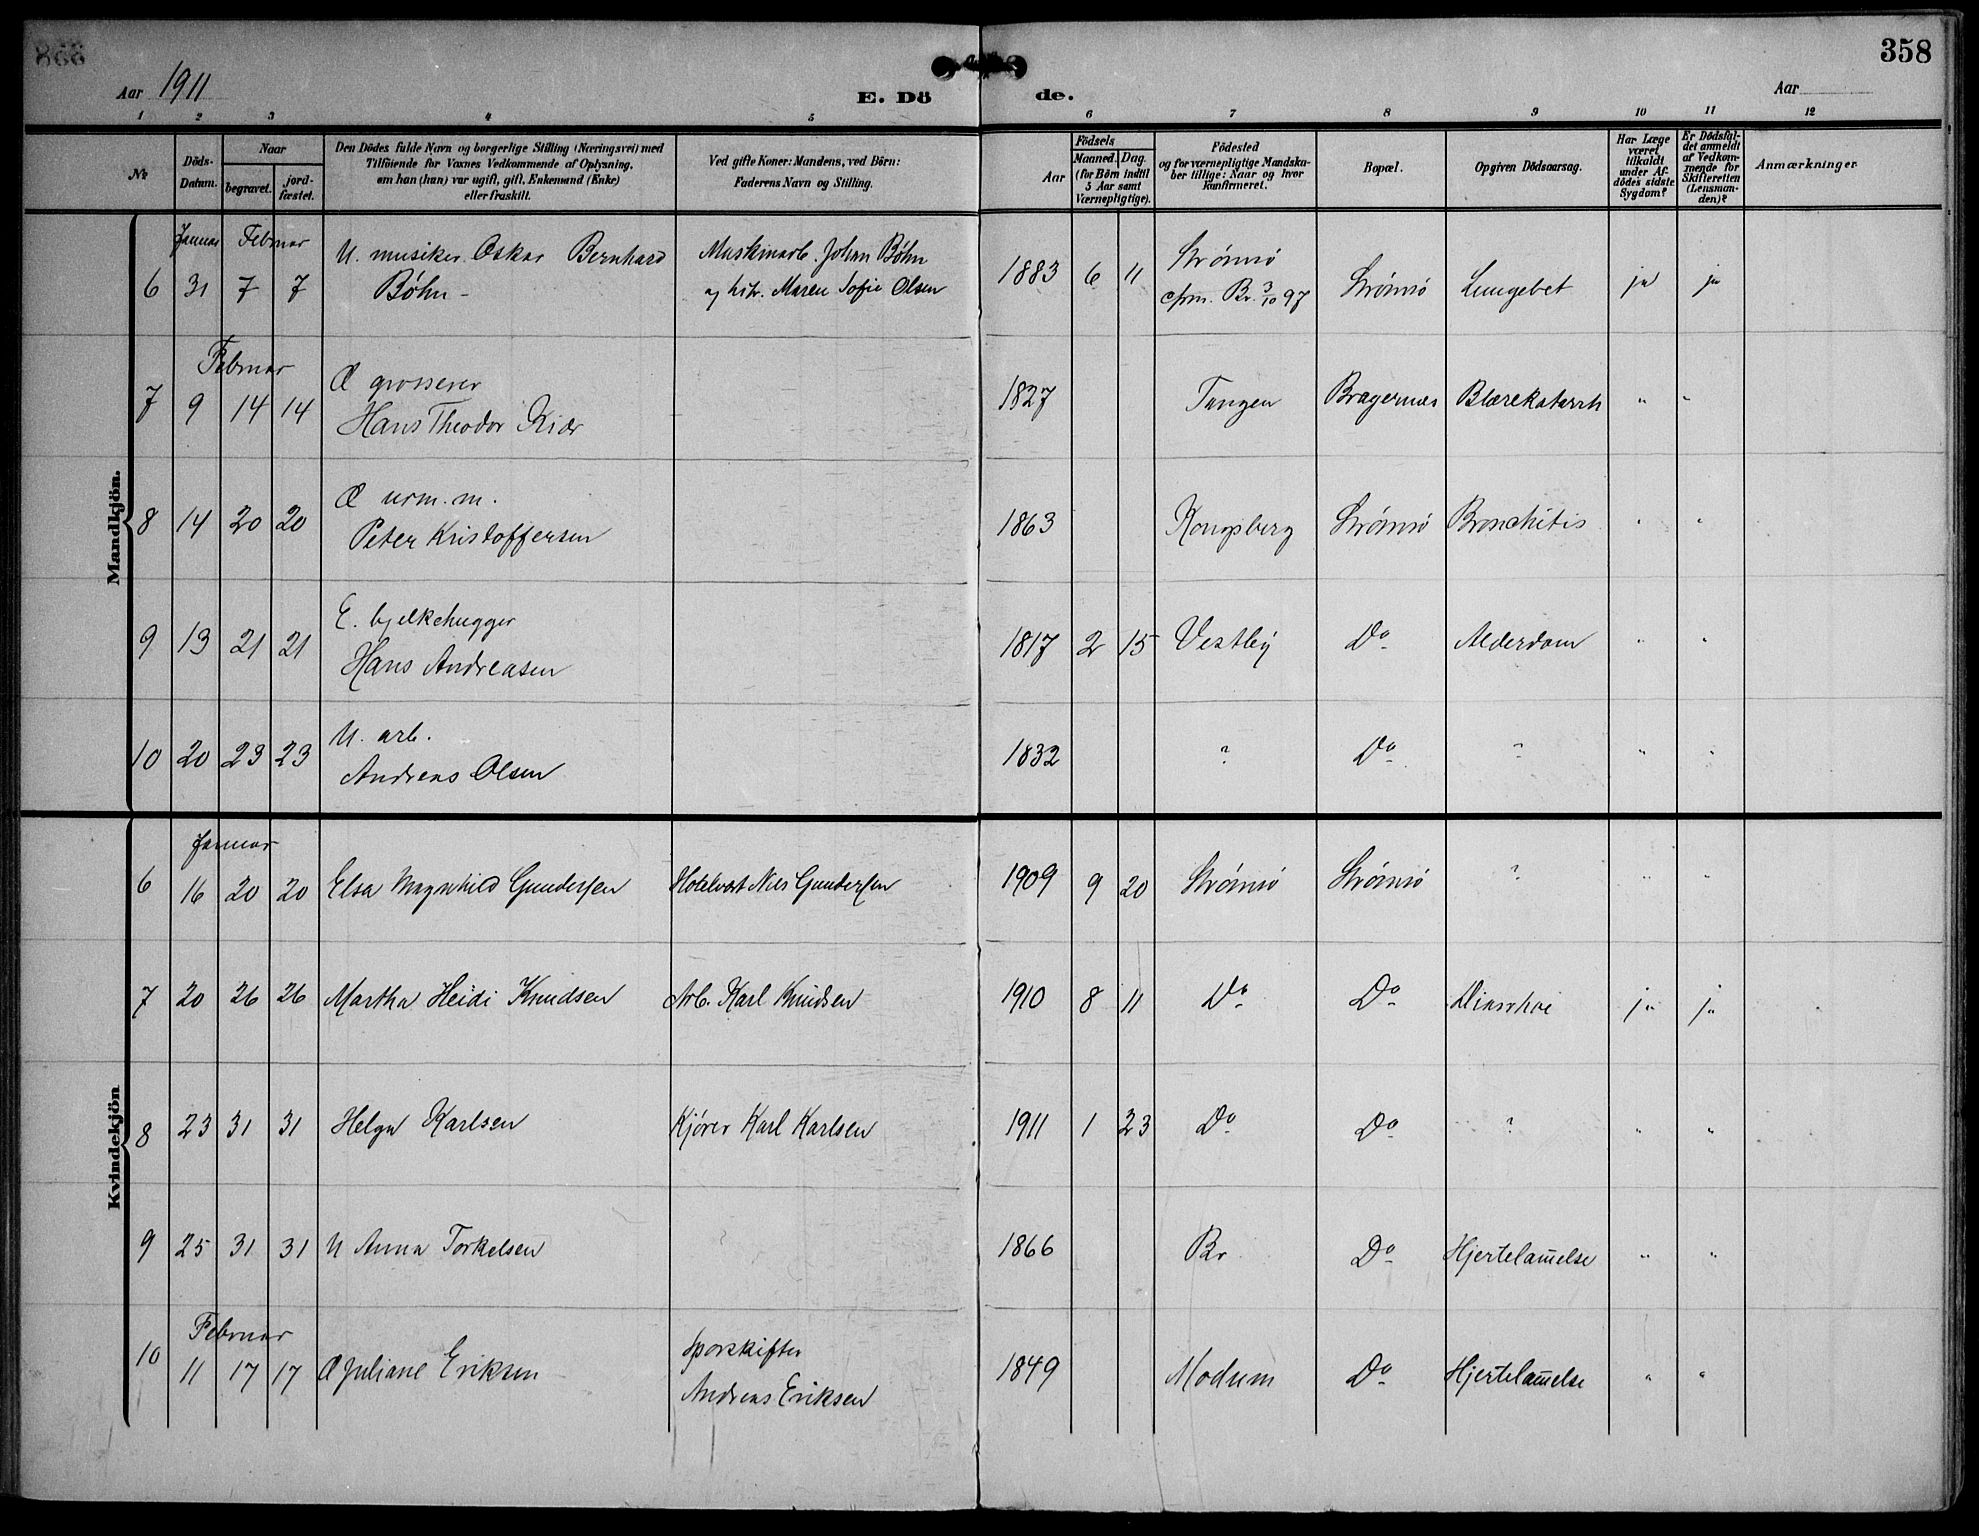 358
Aar 1911
E. Dö de.
Aar
1 2 3 4 5 6 7 8 9 10 11 12
№
Döds-
Datum.
Naar
begravet.
jord-
fæstet.
Den Dödes fulde Navn og borgerlige Stilling (Næringsvei) med
Tilföiende for Voxnes Vedkommende af Oplysning,
om han (hun) var ugift, gift, Enkemand (Enke)
eller fraskilt.
Ved gifte Koner: Mandens, ved Börn:
Faderens Navn og Stilling.
Aar
Födsels
Maaned. Dag.
(for Börn indtil
5 Aar samt
Værnepligtige).
Födested
og for værnepligtige Mandska-
ber tillige: Naar og hvor
konfirmeret.
Bopæl.
Opgiven Dödsaarsag.
Har Læge
været
tilkaldt
under Af-
dödes sidste
Sygdom?
Er Dödsfal-
det anmeldt
af Vedkom-
mende for
Skifteretten
(Lensman-
den)?
Anmærkninger.
Mandkjön.
Januar Februar
6 31 7 7 U. musiker Oskar Bernhard Böhn - Maskinarb. Johan Bøhn og h. Maren Sofie Olsen 1883 6 11 Strømsø Br. 3/10 97 Strømsø Lungebet ja ja
Februar
7 9 14 14 Æ grosserer Hans Theodor Kiær 1827 Tangen Bragernæs Blærekatarrh " "
8 14 20 20 Æ urm. m. Peter Kristoffersen 1863 Kongsberg Strømsø Bronchitis " "
9 13 21 21 E. bjelkehugger Hans Andreasen 1817 2 15 Vestby Do Alderdom " "
10 20 23 23 U. arb. Andreas Olsen 1832 ? Do ? " "
Kvindekjön
Januar
6 16 20 20 Elsa Magnhild Gundersen Hotelvært Nils Gundersen 1909 9 20 Strømsø Strømsø ? " "
7 20 26 26 Martha Heidi Knudsen Arb. Karl Knudsen 1910 8 11 Do Do Diarrhoe ja ja
8 23 31 31 Helga Karlsen Kjører Karl Karlsen 1911 1 23 Do Do ? " "
9 25 31 31 U Anna Torkelsen 1866 Br Do Hjertelam̅else " "
Februar
10 11 17 17 Æ Juliane Eriksen Sporskifter Andreas Eriksen 1849 Modum Do Hjertelam̅else " "